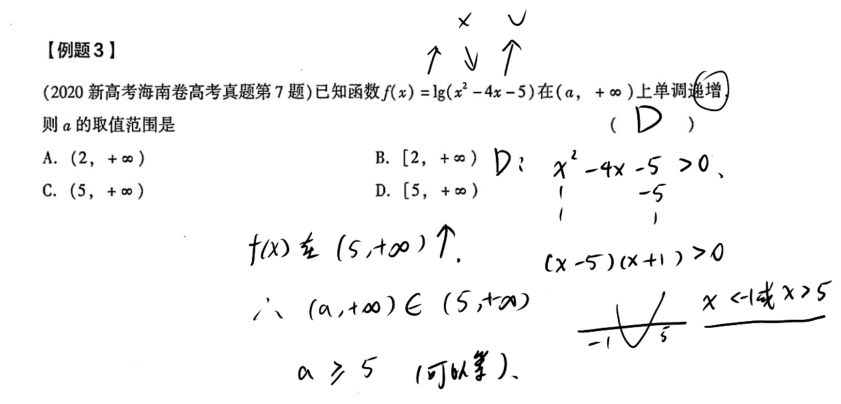 × ∨
【例题3】
↑ ↓ ↑
(2020新高考海南卷高考真题第7题)已知函数f(x)=lg(x²-4x-5)在(a，+∞)上单调递增，
则a的取值范围是 ( D )
A.(2，+∞) B.[2，+∞)
C.(5，+∞) D.[5，+∞)
D: x²-4x-5>0、
1 -5
1 1
f(x)在(5,+∞)↑.
(x-5)(x+1)>0
∴ (a,+∞)∈(5,+∞)
x<-1或x>5
-1 5
a≥5 (可以等)、